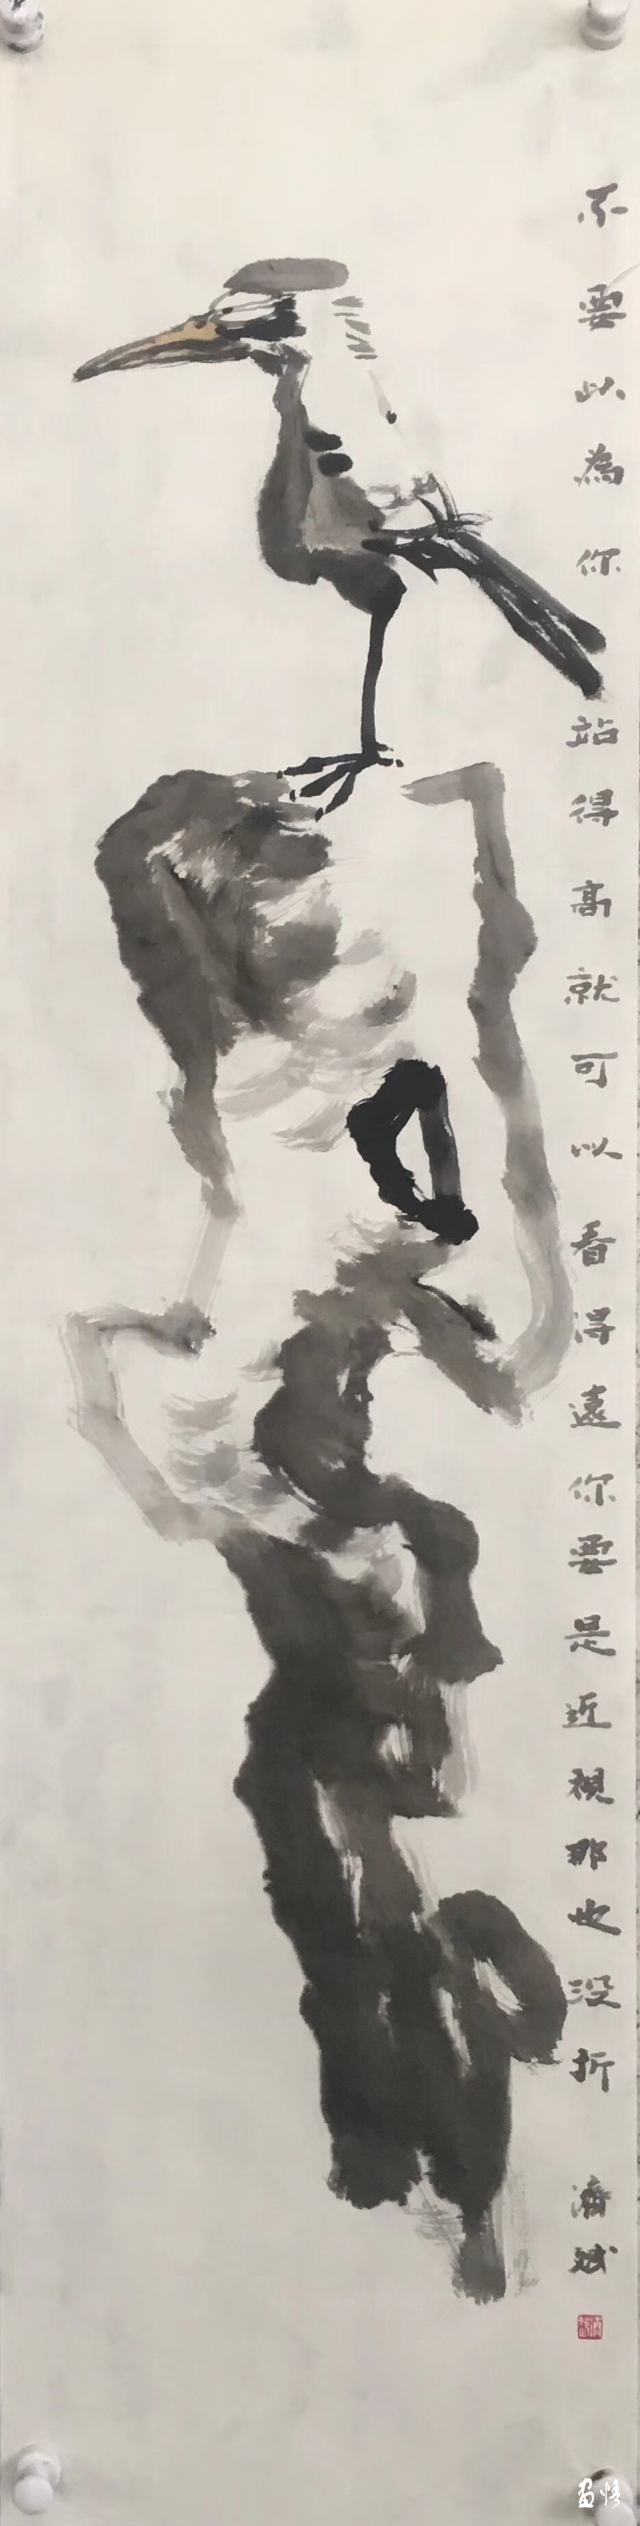 不要以為你站得高就可以看得遠你要是近視那也没折
濟斌
画悟